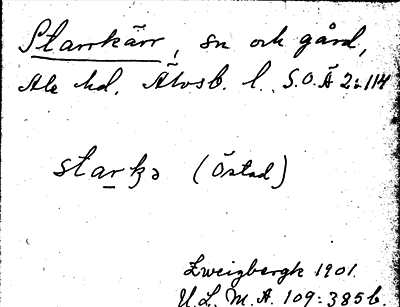 Starrkärr, sn och gård,
Ale hd. Älvsb. l. S.O.Ä 2:114
starkə (Östad)
Zweigbergk 1901.
U.L.M.A. 109:385b.